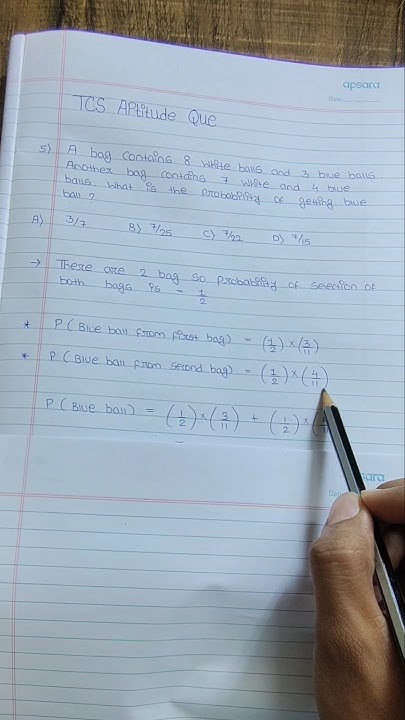 apsara
Date:
TCS Aptitude Que
5) A bag contains 8 white balls and 3 blue balls.
Another bag contains 7 white and 4 blue
balls. What is the probability of getting blue
ball ?
A) 3/7 B) 7/25 C) 7/22 D) 7/15
→ There are 2 bag so probability of selection of
both bags is = 1/2
* P (Blue ball from first bag) = (1/2) × (3/11)
* P (Blue ball from second bag) = (1/2) × (4/11)
P (Blue ball) = (1/2) × (3/11) + (1/2) × (
apsara